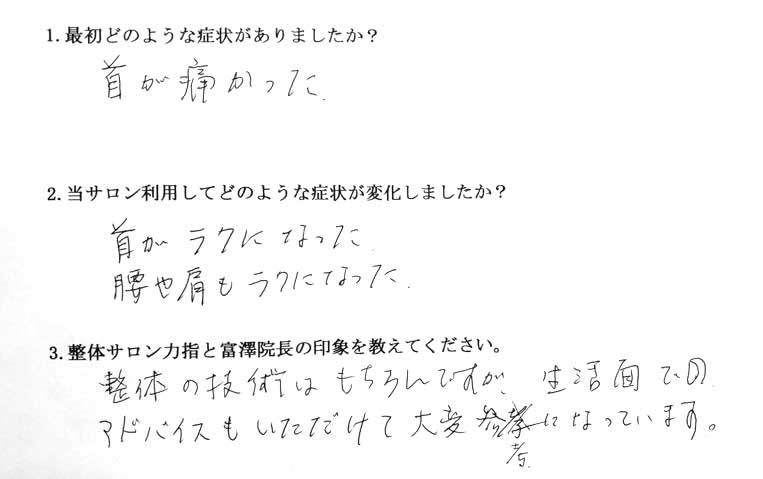 1. 最初どのような症状がありましたか？
首が痛かった.
2. 当サロン利用してどのような症状が変化しましたか？
首がラクになった.
腰や肩もラクになった.
3. 整体サロン力指と富澤院長の印象を教えてください。
整体の技術はもちろんですが、生活面での
アドバイスもいただけて大変参考になっています。